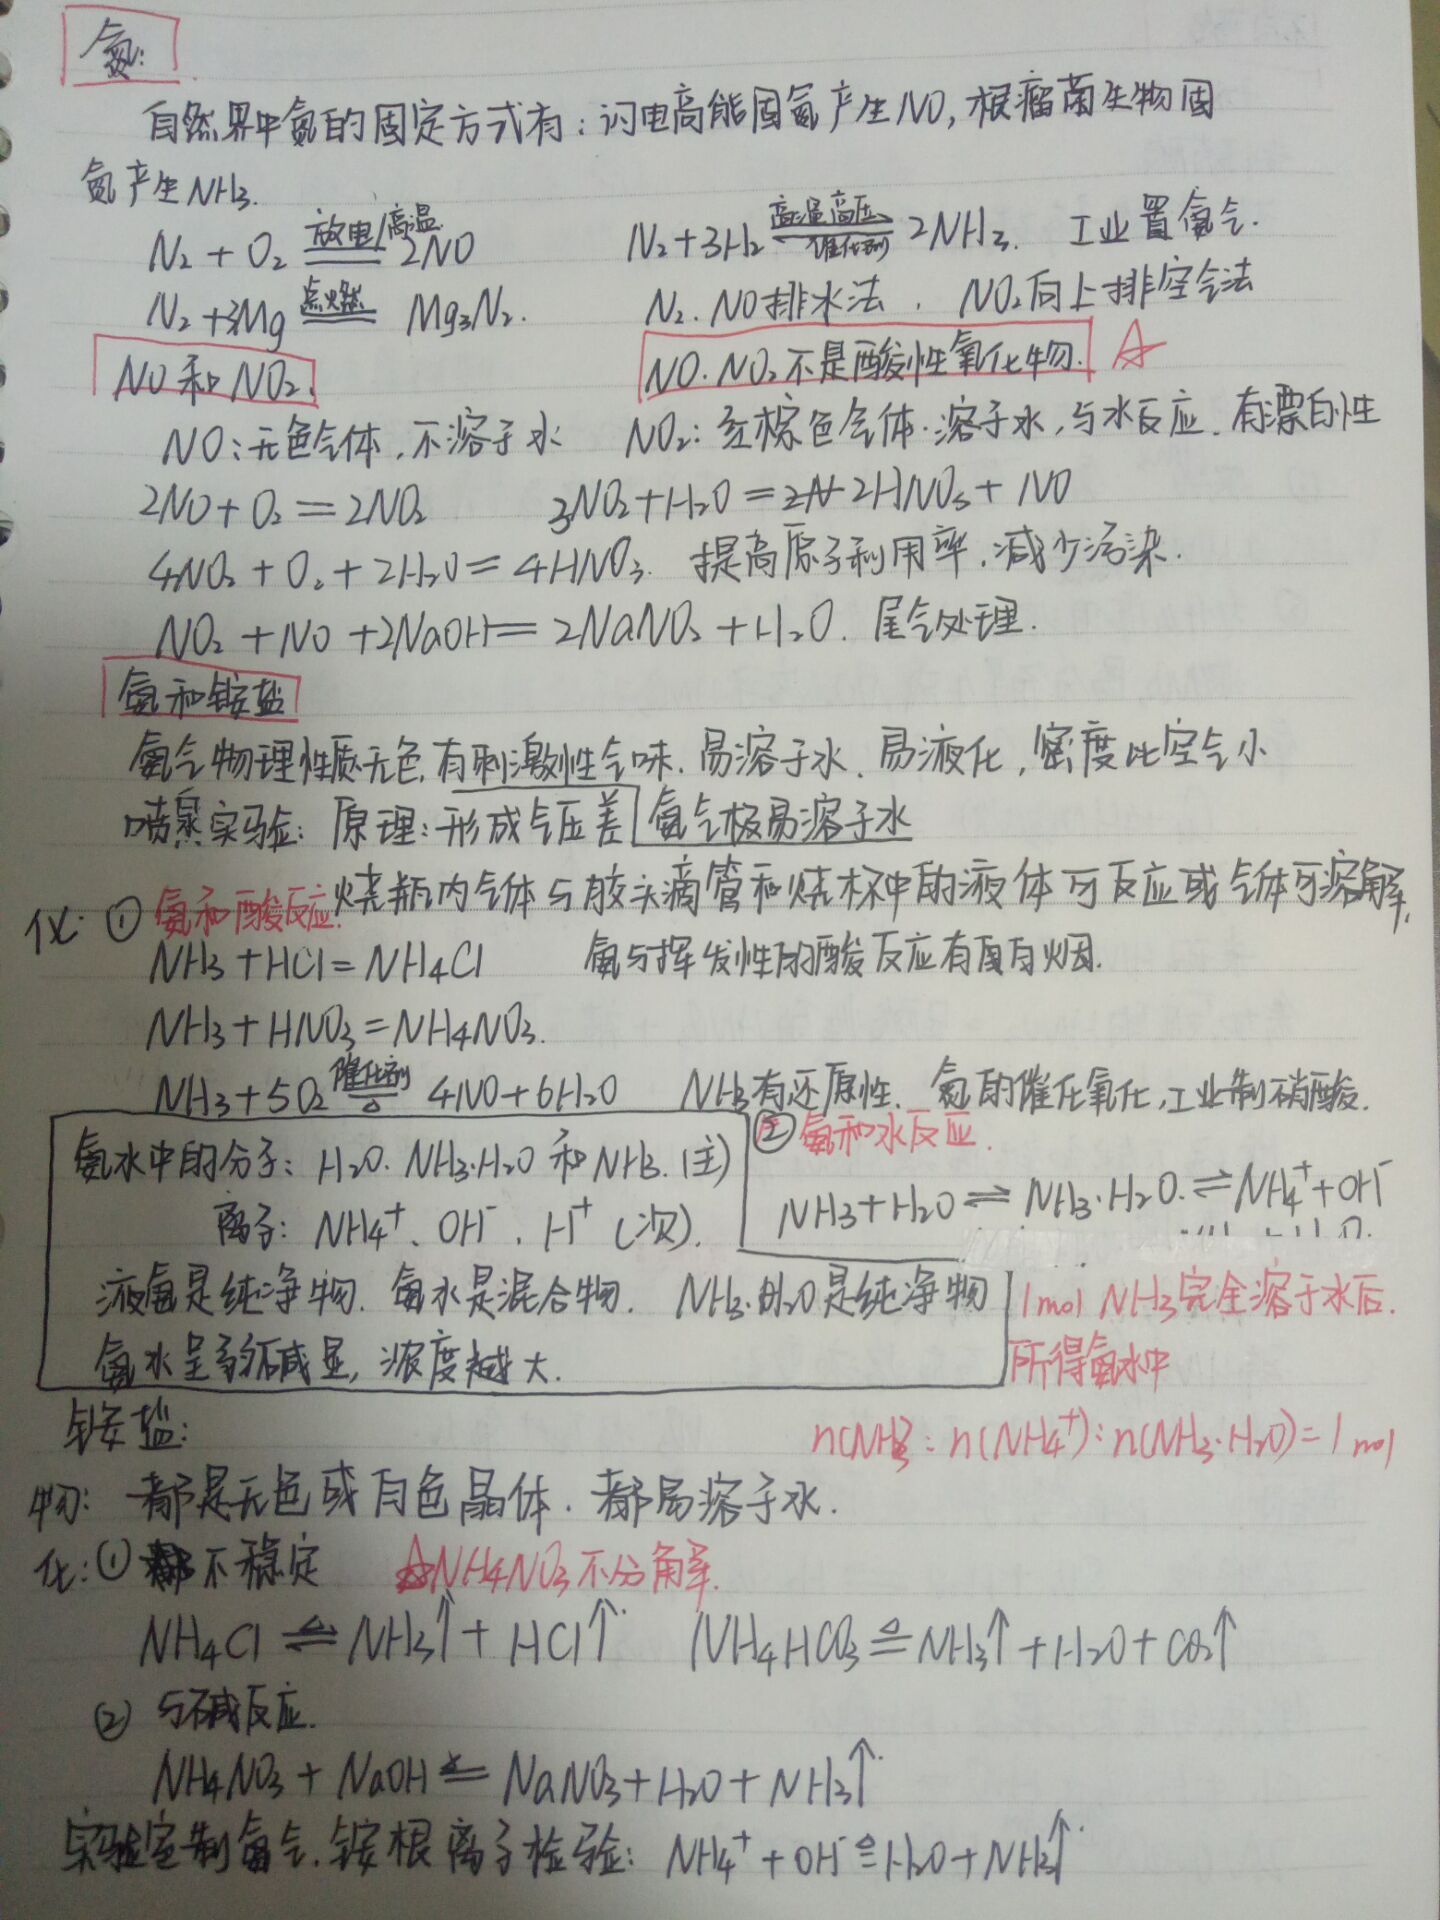 氮:
自然界中氮的固定方式有:闪电高能固氮产生NO,根瘤菌生物固
氮产生NH3.
N₂+O₂ 放电/高温 2NO N₂+3H₂ 高温高压 催化剂 2NH₃. 工业置氨气.
N₂+3Mg 点燃 Mg₃N₂. N₂.NO排水法. NO₂向上排空气法
NO和NO₂. NO.NO₂不是酸性氧化物. ☆
NO:无色气体,不溶于水 NO₂:红棕色气体.溶于水,与水反应.有漂白性
2NO+O₂=2NO₂ 3NO₂+H₂O=2HNO₃+NO
4NO₂+O₂+2H₂O=4HNO₃. 提高原子利用率,减少污染.
NO₂+NO+2NaOH=2NaNO₂+H₂O. 尾气处理.
氨和铵盐
氨气物理性质无色,有刺激性气味.易溶于水.易液化,密度比空气小
喷泉实验:原理:形成气压差 氨气极易溶于水
烧瓶内气体与胶头滴管和烧杯中的液体可反应或气体可溶解.
化:① 氨和酸反应.
NH₃+HCl=NH₄Cl 氨与挥发性的酸反应有白烟.
NH₃+HNO₃=NH₄NO₃.
NH₃+5O₂ 催化剂 △ 4NO+6H₂O NH₃有还原性.氨的催化氧化,工业制硝酸.
② 氨和水反应.
氨水中的分子:H₂O.NH₃·H₂O和NH₃.(主)
NH₃+H₂O⇌NH₃·H₂O.⇌NH₄⁺+OH⁻
离子:NH₄⁺、OH⁻、H⁺(次).
液氨是纯净物.氨水是混合物. NH₃·H₂O是纯净物
氨水呈弱碱显,浓度越大.
1mol NH₃完全溶于水后.
所得氨水中
n(NH₃:n(NH₄⁺):n(NH₃·H₂O)=1mol
铵盐:
物:都是无色或白色晶体.都易溶于水.
化:① 不稳定 ☆NH₄NO₃不分解.
NH₄Cl △= NH₃↑+HCl↑. NH₄HCO₃ △= NH₃↑+H₂O+CO₂↑
② 与碱反应.
NH₄NO₃+NaOH △= NaNO₃+H₂O+NH₃↑.
实验室制氨气.铵根离子检验:NH₄⁺+OH⁻ △= H₂O+NH₃↑.